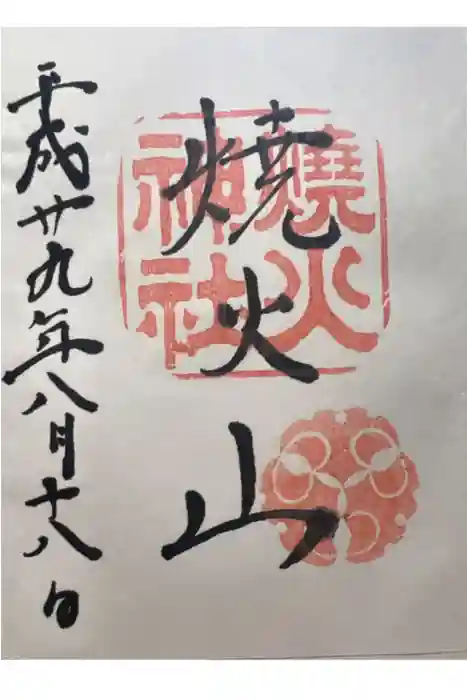 焼火山
燒火
神社
平成廿九年八月十八日